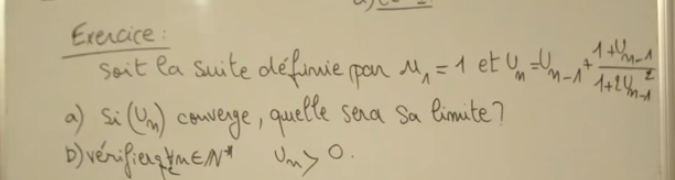 Exercice :
soit la suite définie par u₁ = 1 et Uₙ = Uₙ₋₁ + (1+Uₙ₋₁)/(1+2Uₙ₋₁²)
a) Si (Uₙ) converge, quelle sera sa limite?
b) vérifier q ∀n∈N* Uₙ > 0.